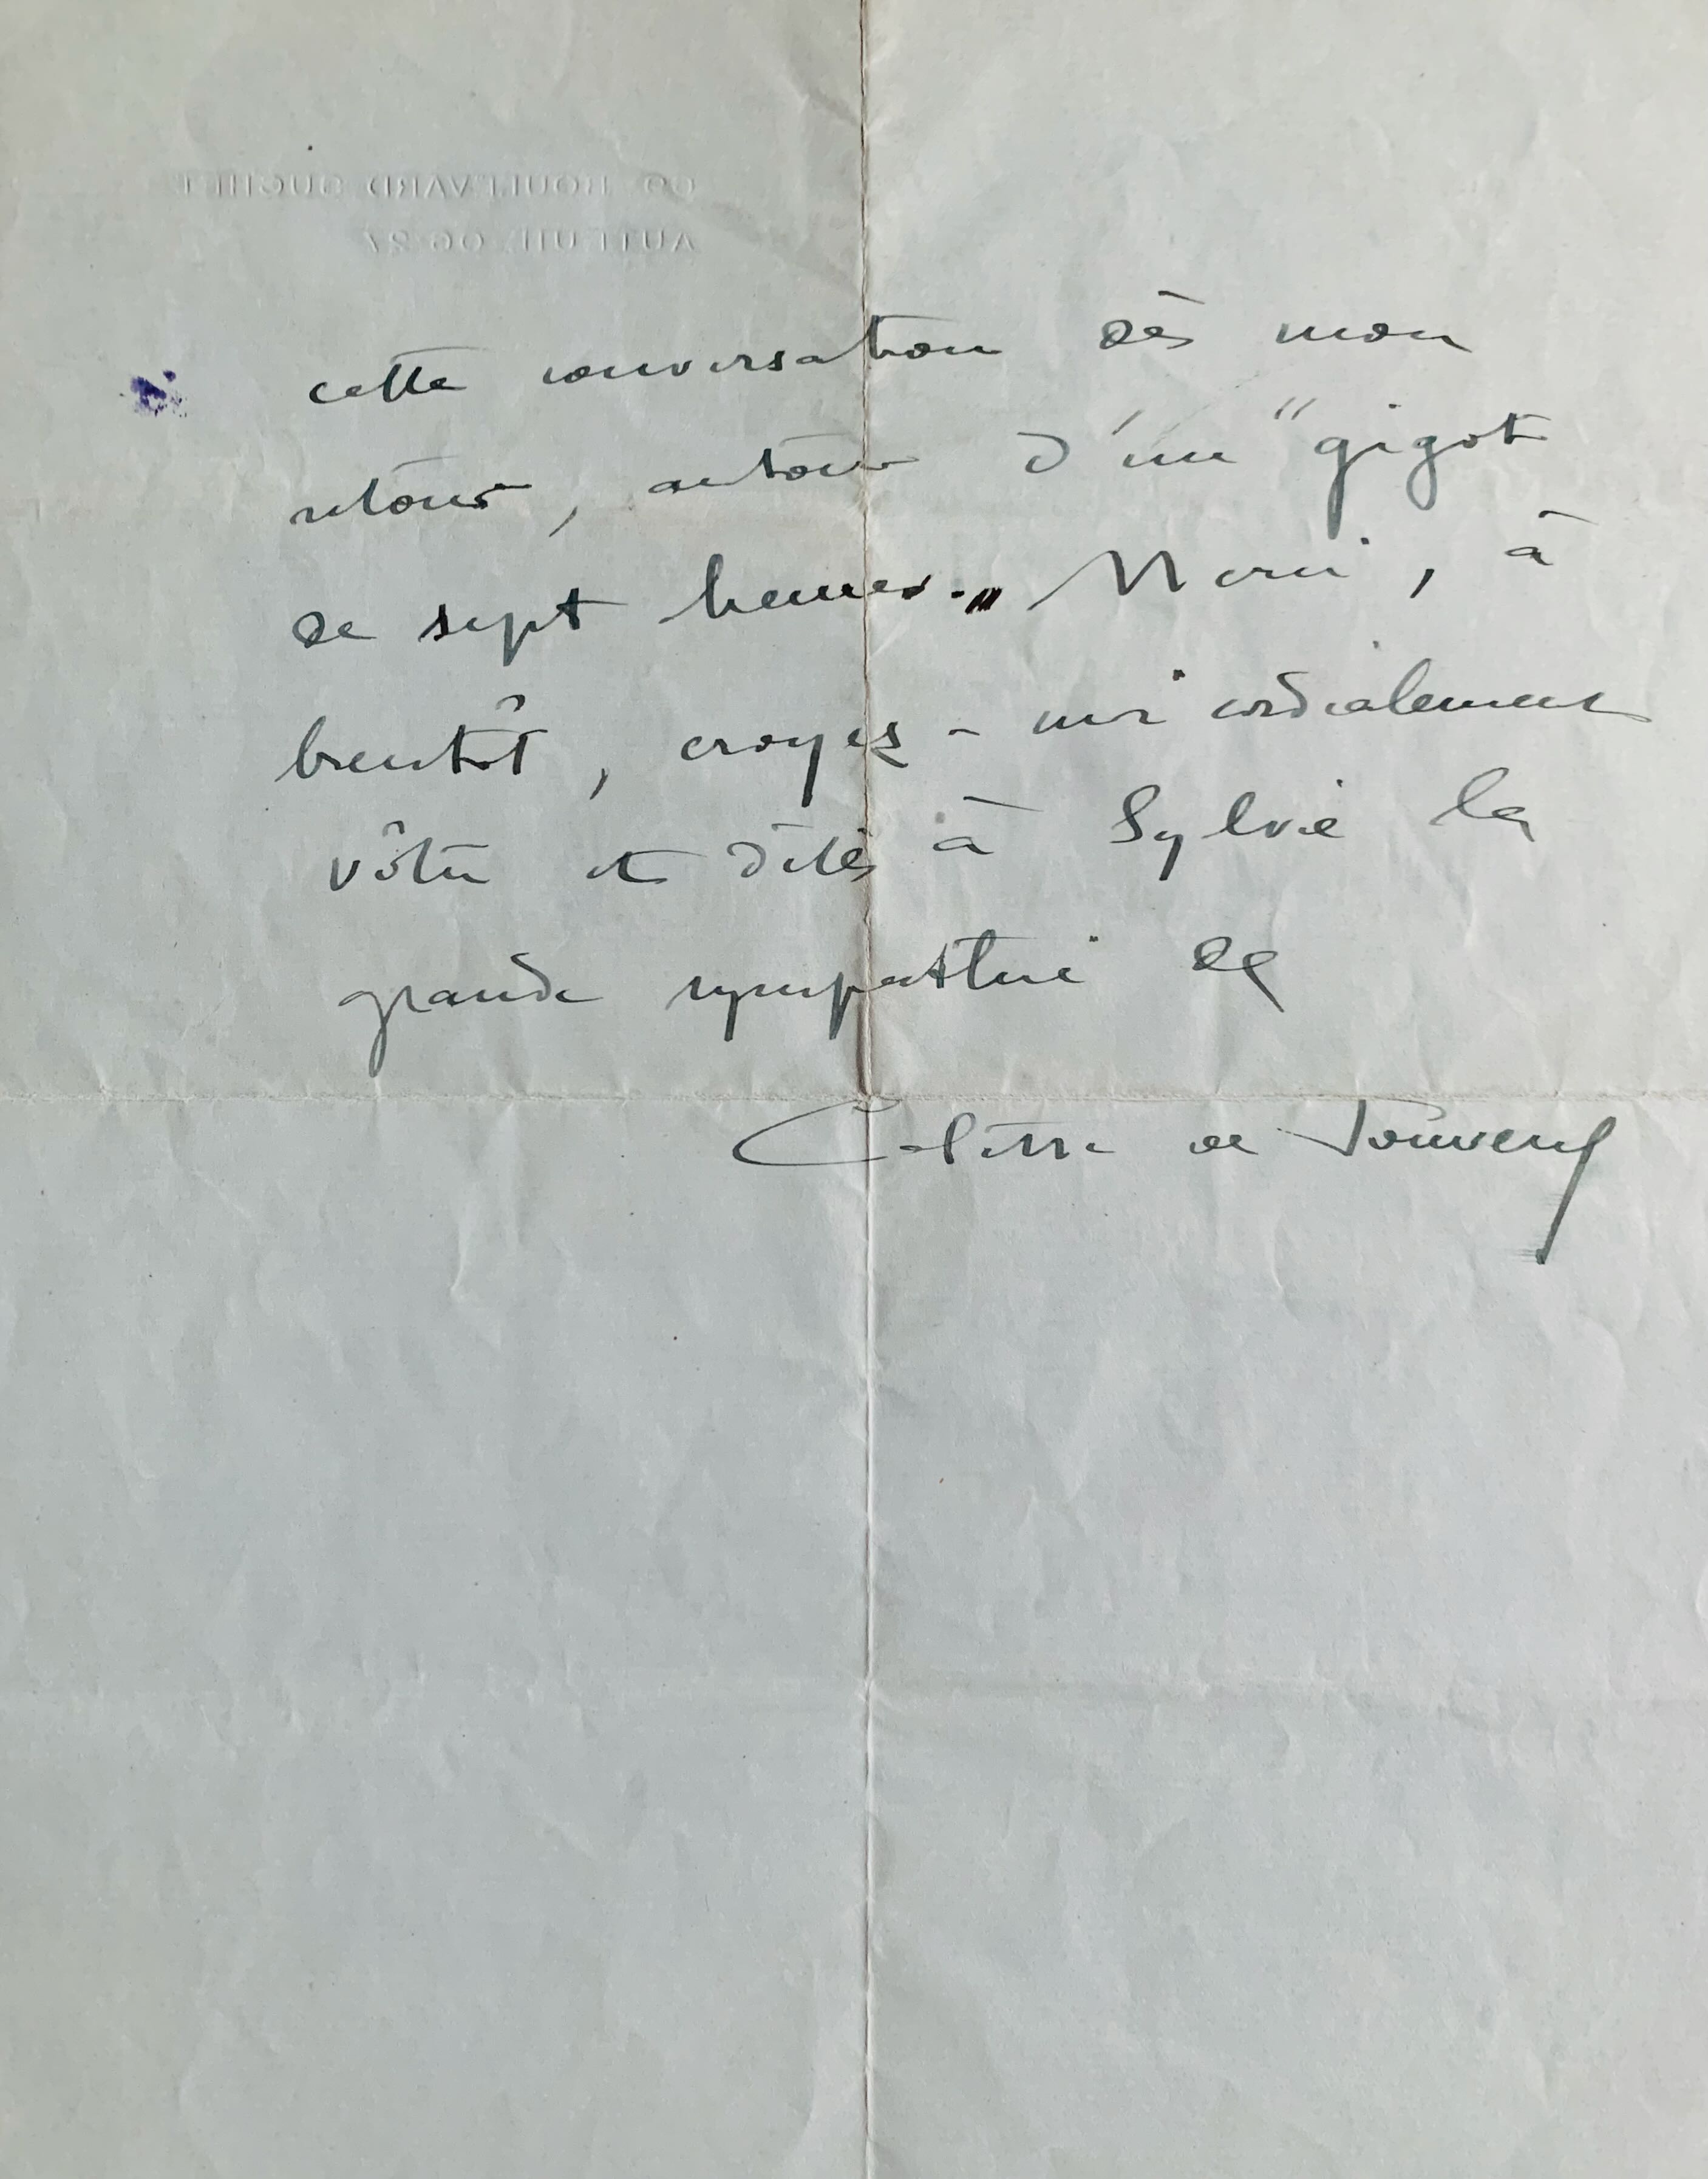 69 BOULEVARD SUCHET
AUTEUIL 06-27
cette conversation dès mon
retour, autour d'un "gigot
de sept heures." Merci, à
bientôt, croyez-moi cordialement
vôtre et dites à Sylvie la
grande sympathie de
Colette de Jouvenel